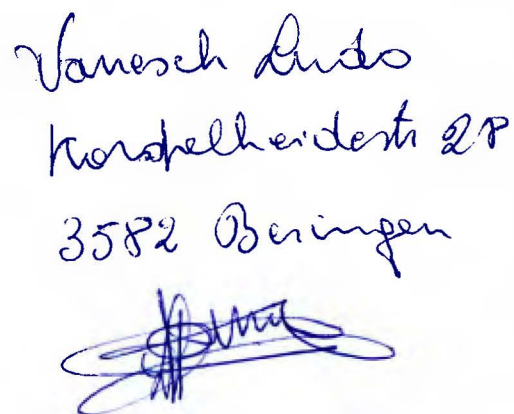 Vanesch Ludo
Korspelheidestr 28
3582 Beringen